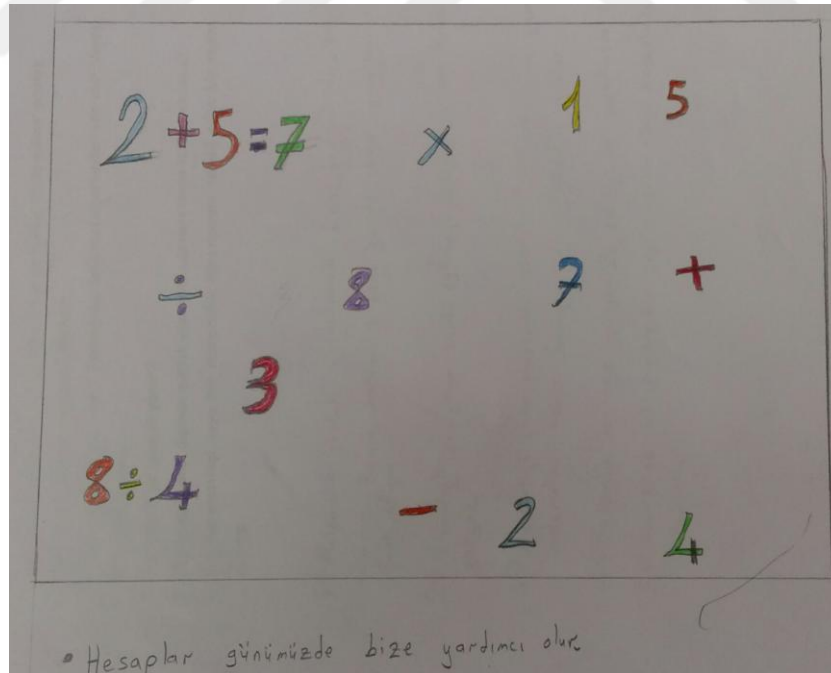 2+5=7 x 1 5
÷ 8 7 +
3
8÷4
- 2 4
• Hesaplar günümüzde bize yardımcı olur